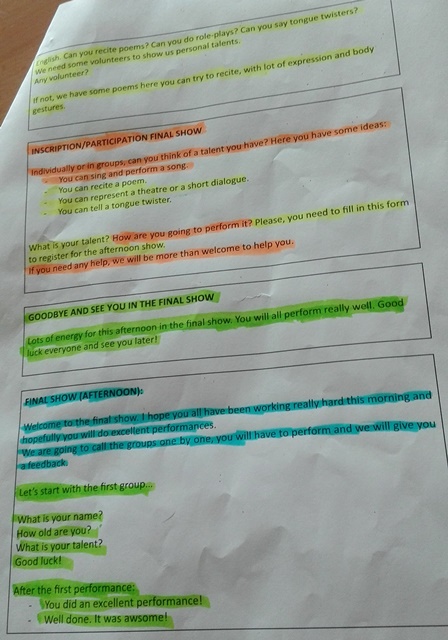 English. Can you recite poems? Can you do role-plays? Can you say tongue twisters?
We need some volunteers to show us personal talents.
Any volunteer?
If not, we have some poems here you can try to recite, with lot of expression and body
gestures.
INSCRIPTION/PARTICIPATION FINAL SHOW
Individually or in groups, can you think of a talent you have? Here you have some ideas:
- You can sing and perform a song.
- You can recite a poem.
- You can represent a theatre or a short dialogue.
- You can tell a tongue twister.
What is your talent? How are you going to perform it? Please, you need to fill in this form
to register for the afternoon show.
If you need any help, we will be more than welcome to help you.
GOODBYE AND SEE YOU IN THE FINAL SHOW
Lots of energy for this afternoon in the final show. You will all perform really well. Good
luck everyone and see you later!
FINAL SHOW (AFTERNOON):
Welcome to the final show. I hope you all have been working really hard this morning and
hopefully you will do excellent performances.
We are going to call the groups one by one, you will have to perform and we will give you
a feedback.
Let's start with the first group...
What is your name?
How old are you?
What is your talent?
Good luck!
After the first performance:
- You did an excellent performance!
- Well done. It was awsome!